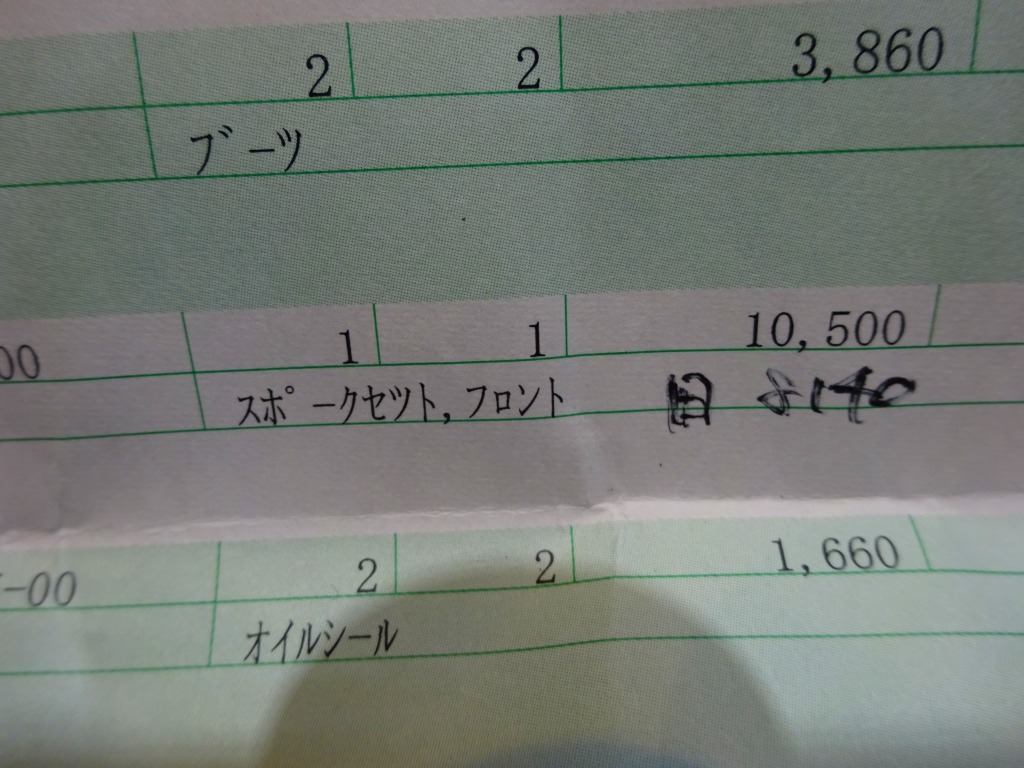 2 2 3,860
ブーツ
00 1 1 10,500
スポークセツト,フロント
-00 2 2 1,660
オイルシール